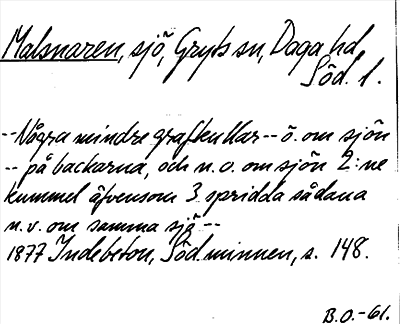 Malsnaren, sjö, Gryts sn, Daga hd,
Söd. l.
--Några mindre grafkullar -- ö. om sjön
-- på backarna, och n.o. om sjön 2:ne
kummel äfvensom 3 spridda sådana
n.v. om samma sjö --
1877 Indebetou, Söd. minnen, s. 148.
B.O.-61.